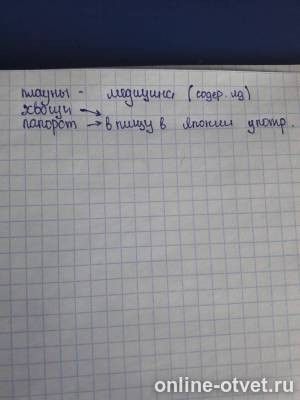 плауны - медицина (содер. яд)
хвощи →
папорот → в пищу в Японии употр.
online-otvet.ru